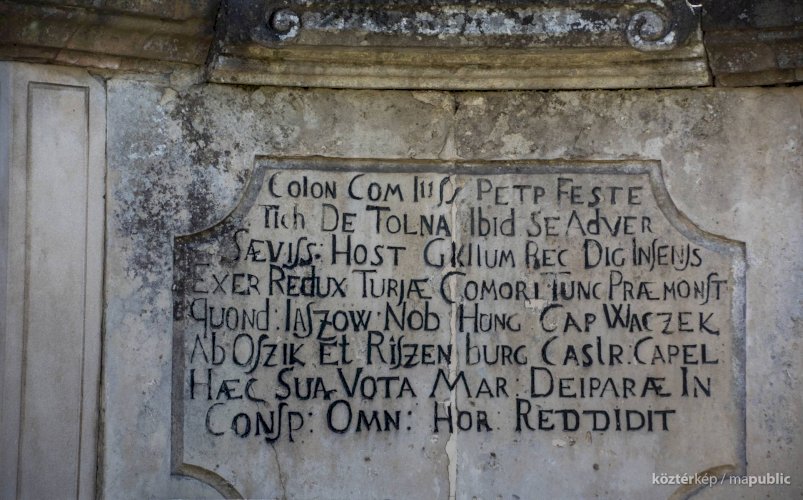 COLON COM IUSS PETP FESTE
TICH DE TOLNA IBID SE ADVER
SÆVISS: HOST GKLIUM REC DIG INSENJS
EXER REDUX TURJÆ COMORI TUNC PRÆMONST
QUOND: IASZOW: NOB HUNG CAP WACZEK
AB OSZIK ET RISZEN BURG CASTR: CAPEL
HÆC SUA VOTA MAR: DEIPARÆ IN
CONSP: OMN: HOR: REDDIDIT
köztérkép / mapublic